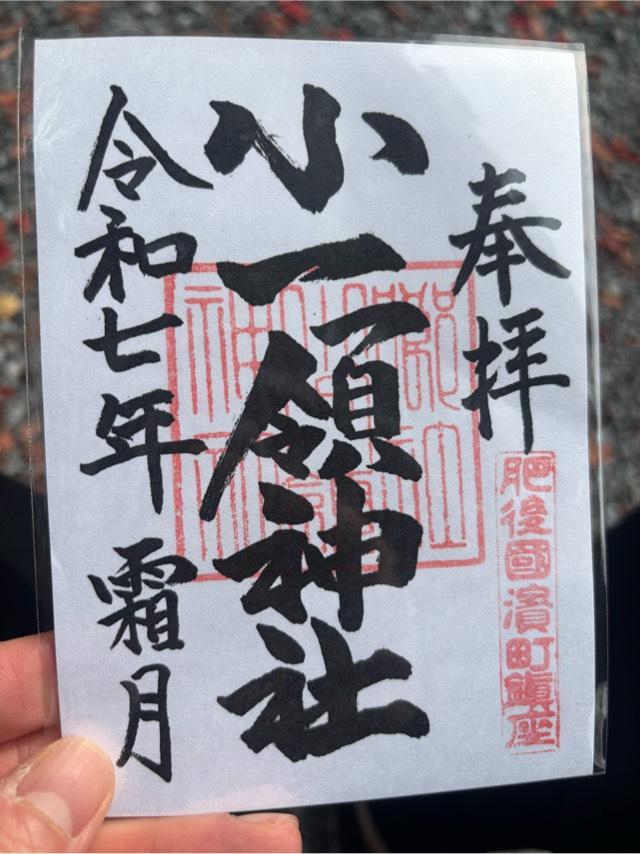 奉拝
肥後國濱町鎮座
小一領神社
令和七年 霜月